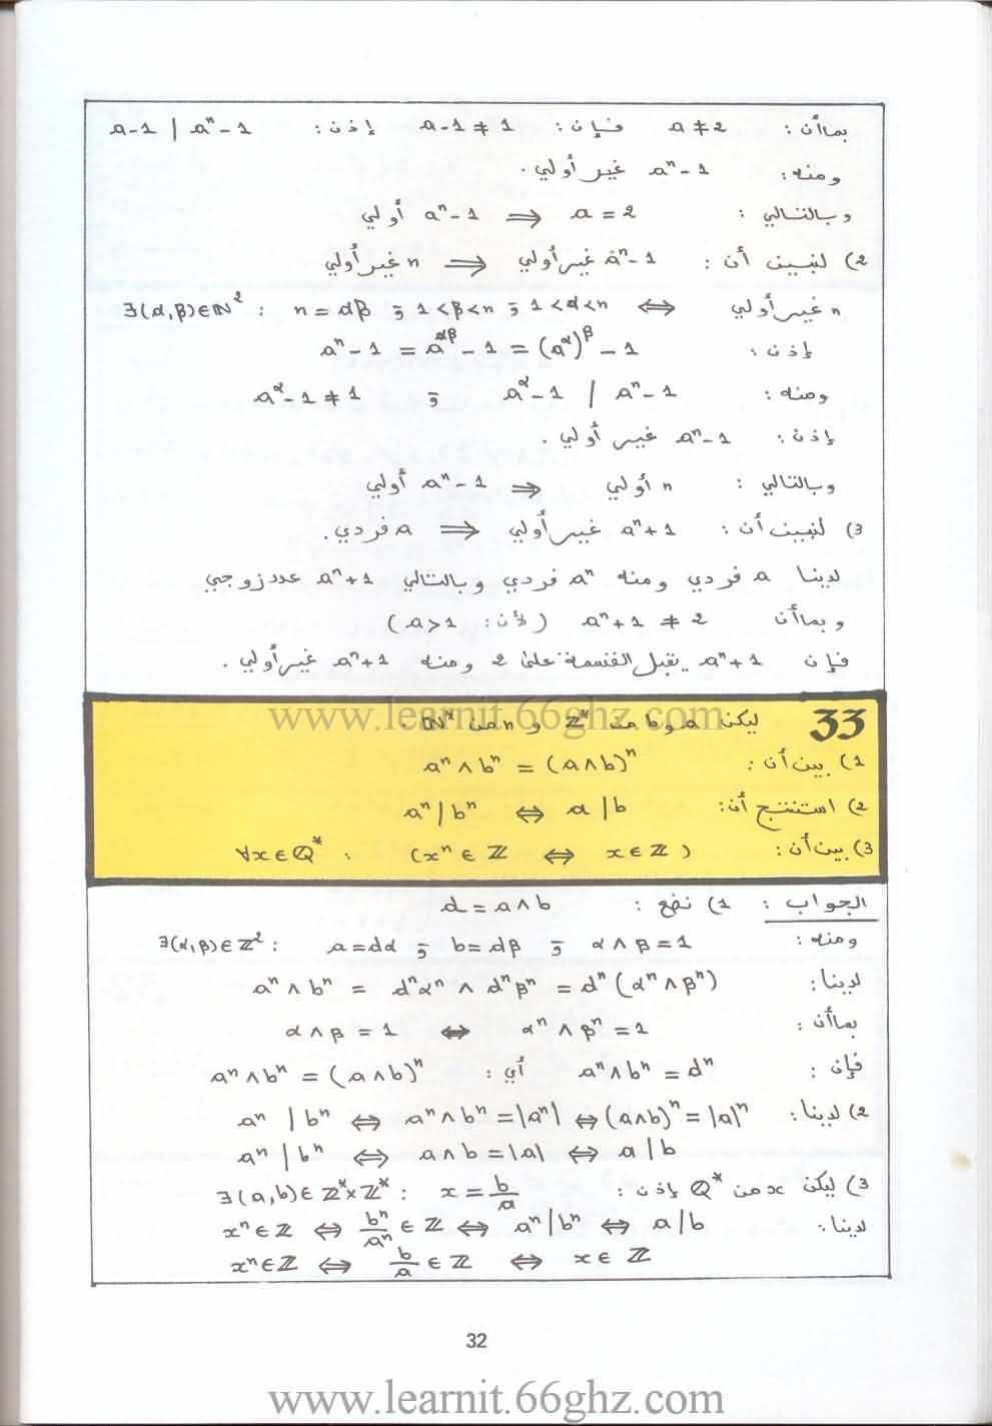 بما أن : a ≠ 2 فإن : a-1 ≠ 1 إذن : a-1 | aⁿ-1
ومنه : aⁿ-1 غير أولي .
وبالتالي : a = 2 ⇐ aⁿ-1 أولي
2) لنبين أن : aⁿ-1 غير أولي ⇐ n غير أولي
n غير أولي ⇔ ∃(α,β)∈ℕ² : n = αβ ; 1<β<n ; 1<α<n
إذن : aⁿ-1 = a^αβ - 1 = (a^α)^β - 1
ومنه : a^α-1 | aⁿ-1 ; a^α-1 ≠ 1
إذن : aⁿ-1 غير أولي .
وبالتالي : n أولي ⇐ aⁿ-1 أولي
3) لنبين أن : aⁿ+1 غير أولي ⇐ a فردي .
لدينا a فردي ومنه aⁿ فردي وبالتالي aⁿ+1 عدد زوجي
وبما أن aⁿ+1 ≠ 2 (لأن : a>1)
فإن aⁿ+1 يقبل القسمة على 2 ومنه aⁿ+1 غير أولي .
33 ليكن a و b من ℤ* و n من ℕ*
www.learnit.66ghz.com
1) بين أن : aⁿ∧bⁿ = (a∧b)ⁿ
2) استنتج أن : aⁿ|bⁿ ⇔ a|b
3) بين أن : ∀x∈ℚ* : (xⁿ∈ℤ ⇔ x∈ℤ)
الجواب : 1) نضع : d = a∧b
ومنه : ∃(α,β)∈ℤ² : a=dα ; b=dβ ; α∧β=1
لدينا : aⁿ∧bⁿ = dⁿαⁿ ∧ dⁿβⁿ = dⁿ(αⁿ∧βⁿ)
بما أن : α∧β = 1 ⇔ αⁿ∧βⁿ = 1
فإن : aⁿ∧bⁿ = dⁿ أي : aⁿ∧bⁿ = (a∧b)ⁿ
2) لدينا : aⁿ | bⁿ ⇔ aⁿ∧bⁿ = |aⁿ| ⇔ (a∧b)ⁿ = |a|ⁿ
aⁿ | bⁿ ⇔ a∧b = |a| ⇔ a|b
3) ليكن x من ℚ* إذن : ∃(a,b)∈ℤ*×ℤ* : x = b/a
لدينا : xⁿ∈ℤ ⇔ bⁿ/aⁿ ∈ℤ ⇔ aⁿ|bⁿ ⇔ a|b
xⁿ∈ℤ ⇔ b/a ∈ℤ ⇔ x∈ℤ
32
www.learnit.66ghz.com